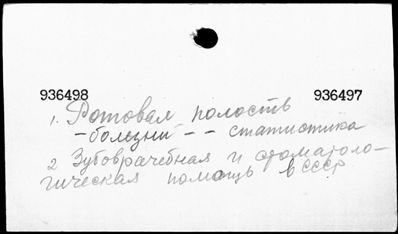 936498 936497
1. Ротовая полость
- болезни - - статистика
2 Зубоврачебная и стоматоло-
гическая помощь в СССР